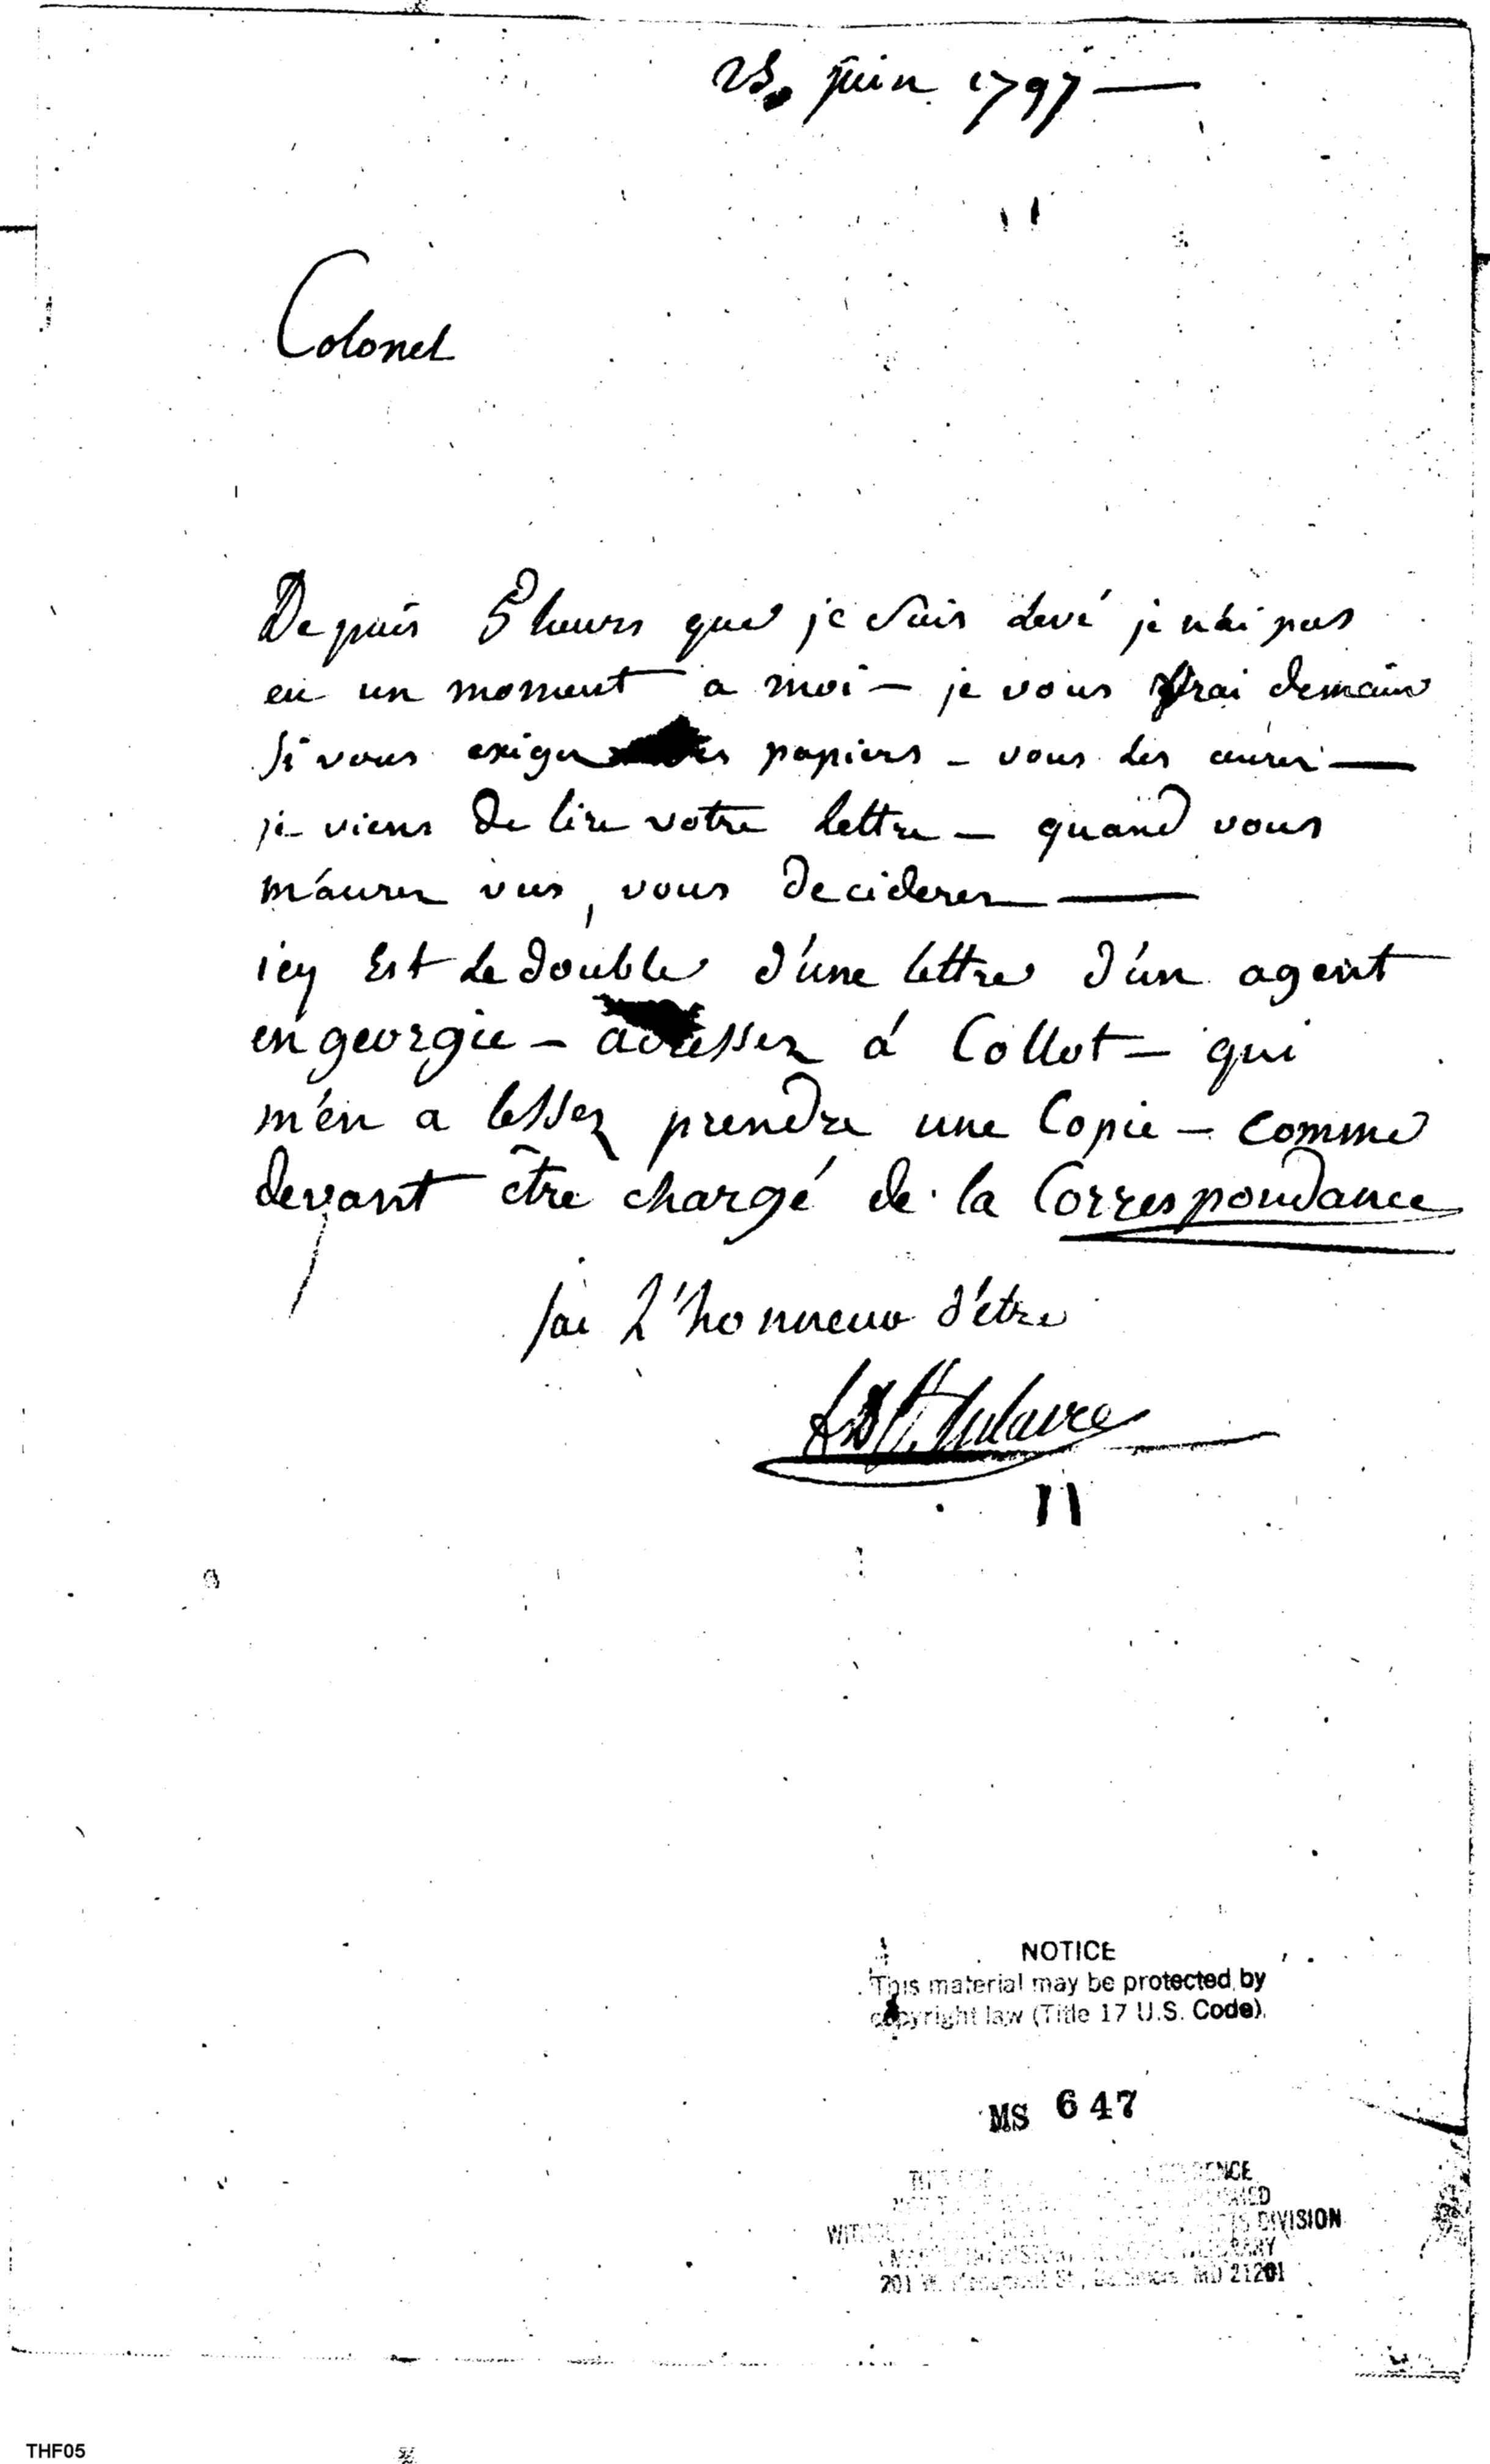 23. juin 1797 —
Colonel
Depuis 5 heures que je suis levé je n'ai pas
eu un moment a moi — je vous demain
si vous exigez papiers — vous les aurez —
je viens de lire votre lettre — quand vous
m'aurez vus, vous deciderez —
icy Est le double d'une lettre d'un agent
en georgie — adressez á Collot — qui
m'en a lessez prendre une Copie — comme
devant être chargé de la Correspondance
j'ai L'honneur d'etre
NOTICE
This material may be protected by
copyright law (Title 17 U.S. Code).
MS 647
DIVISION
201 W. Monument St., Baltimore, MD 21201
THF05